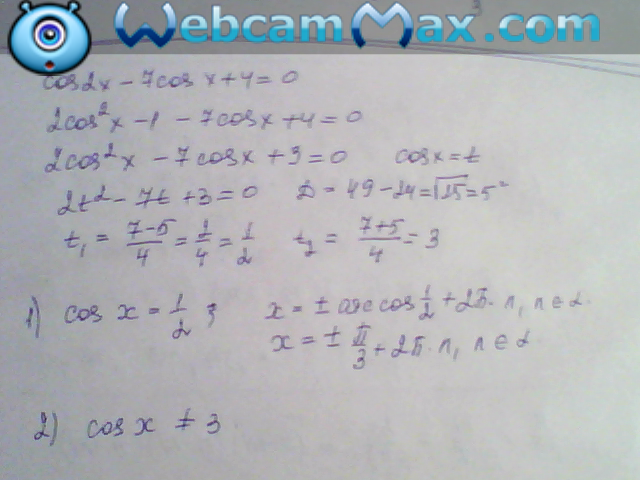 WebcamMax.com
cos2x - 7cos x + 4 = 0
2cos²x - 1 - 7cosx + 4 = 0
2cos²x - 7cosx + 3 = 0 cosx = t
2t² - 7t + 3 = 0 D = 49 - 24 = √25 = 5
t₁ = (7-5)/4 = 2/4 = 1/2 t₂ = (7+5)/4 = 3
1) cos x = 1/2 ; x = ± arccos 1/2 + 2π·n, n ∈ Z.
x = ± π/3 + 2π·n, n ∈ Z
2) cos x ≠ 3